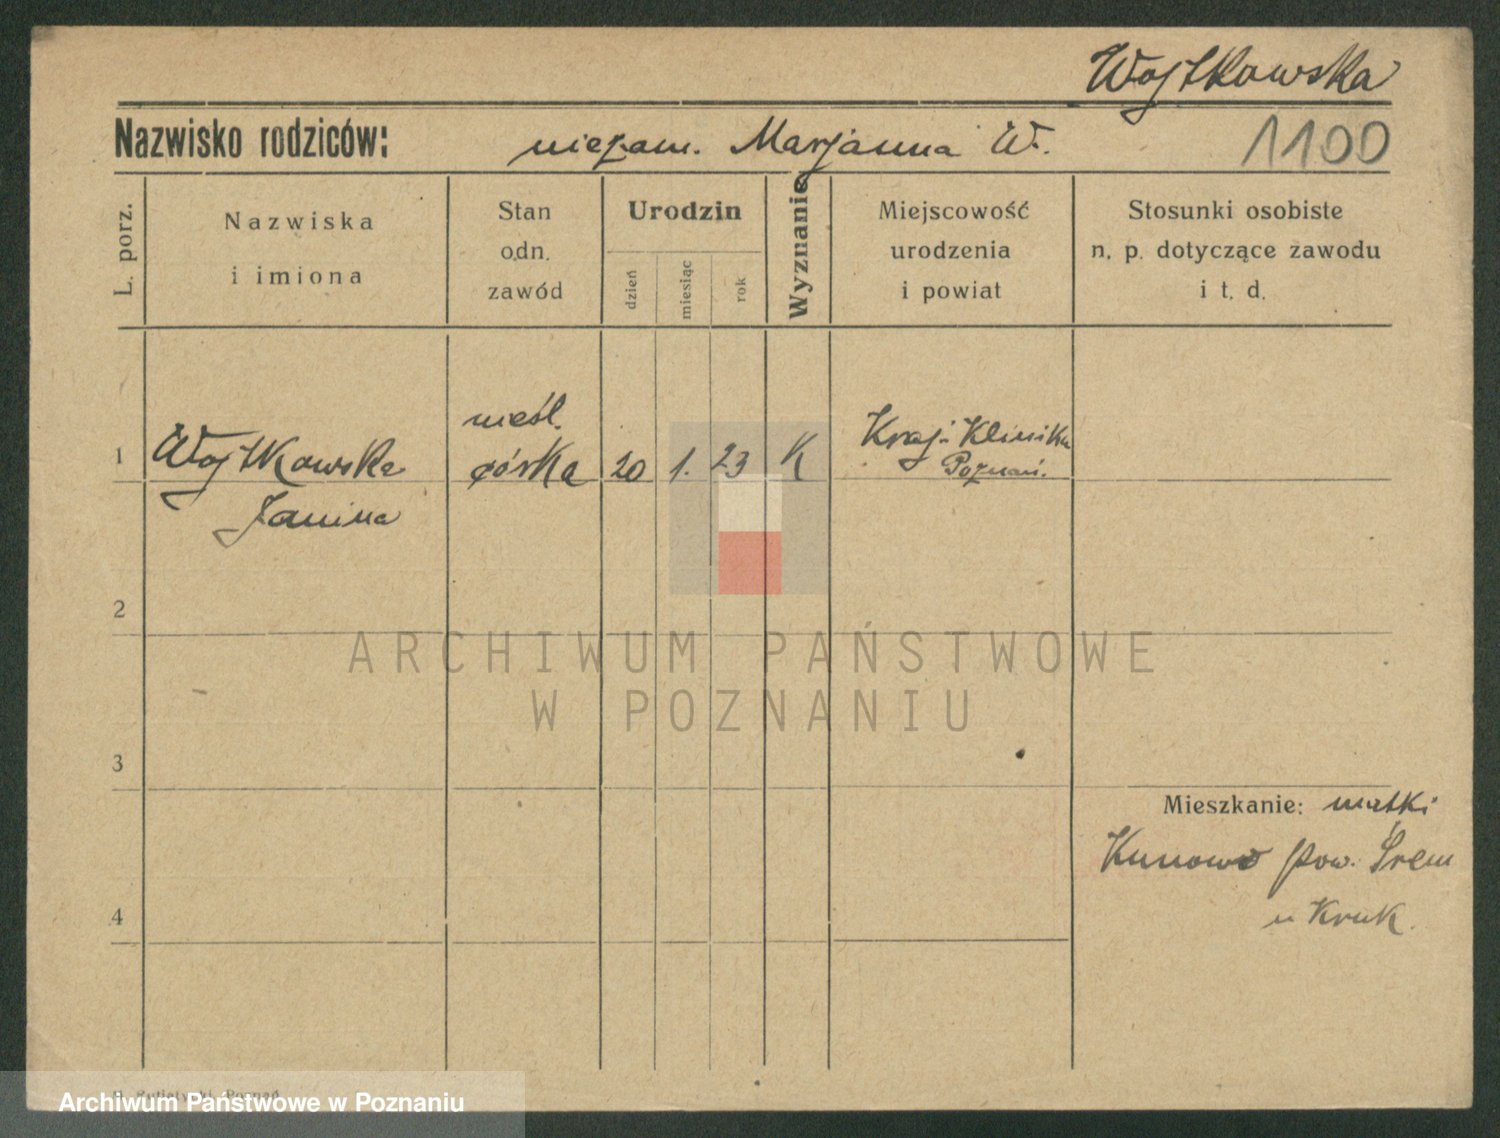 Wojtkowska
Nazwisko rodziców: niezam. Marjanna W. 1100
L. porz.
Nazwiska
i imiona
Stan
odn.
zawód
Urodzin
dzień
miesiąc
rok
Wyznanie
Miejscowość
urodzenia
i powiat
Stosunki osobiste
n. p. dotyczące zawodu
i t. d.
1 Wojtkowska
Janina
nieśl.
córka
20 1. 23 K
Kraj. Klinika
Poznań.
2
3
4
Mieszkanie: matki
Kunowo pow. Śrem
u Kruk.
ARCHIWUM PAŃSTWOWE
W POZNANIU
Poznań
Archiwum Państwowe w Poznaniu